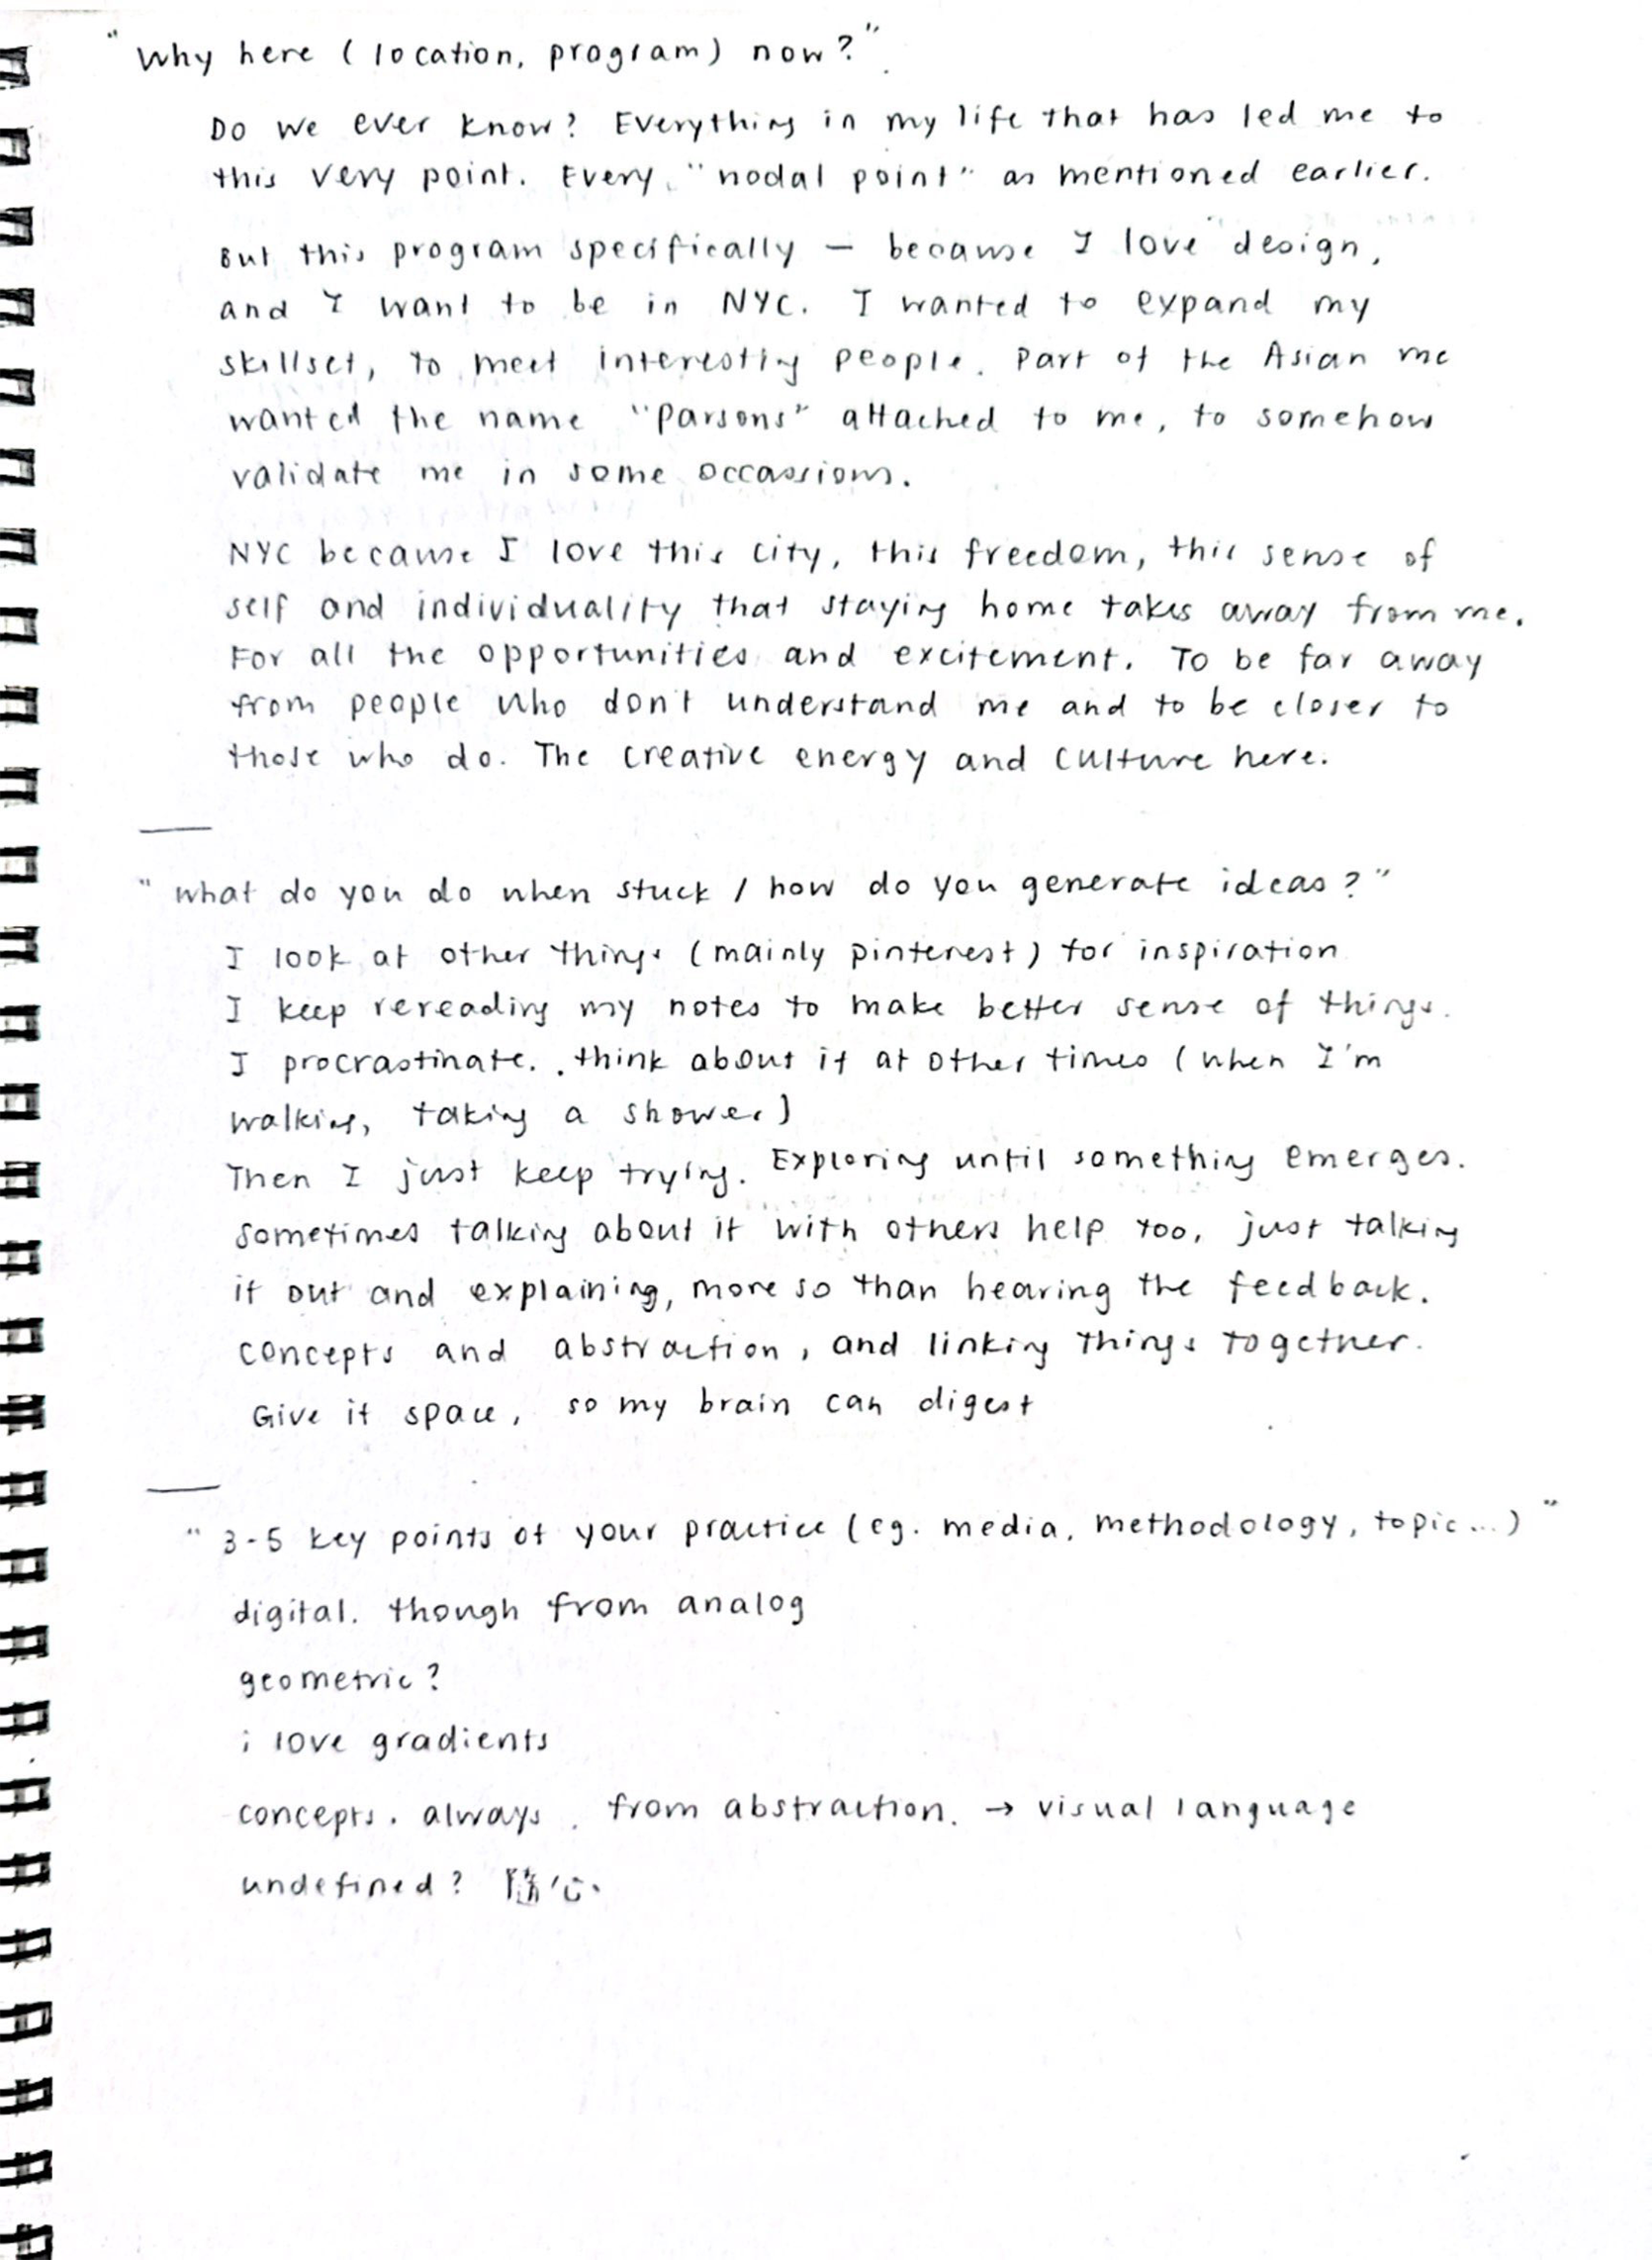 "Why here (location, program) now?"
Do we ever know? Everything in my life that has led me to
this very point. Every "nodal point" as mentioned earlier.
But this program specifically — because I love design,
and I want to be in NYC. I wanted to expand my
skillset, to meet interesting people. Part of the Asian me
wanted the name "Parsons" attached to me, to somehow
validate me in some occassions.
NYC because I love this city, this freedom, this sense of
self and individuality that staying home takes away from me.
For all the opportunities and excitement. To be far away
from people who don't understand me and to be closer to
those who do. The creative energy and culture here.
"what do you do when stuck / how do you generate ideas?"
I look at other things (mainly pinterest) for inspiration
I keep rereading my notes to make better sense of things.
I procrastinate. . think about it at other times (when I'm
walking, taking a shower)
Then I just keep trying. Exploring until something emerges.
Sometimes talking about it with others help too, just talking
it out and explaining, more so than hearing the feedback.
concepts and abstraction, and linking things together.
Give it space, so my brain can digest
"3-5 key points of your practice (eg. media, methodology, topic...)"
digital. though from analog
geometric?
i love gradients
concepts. always. from abstraction. → visual language
undefined? 随心